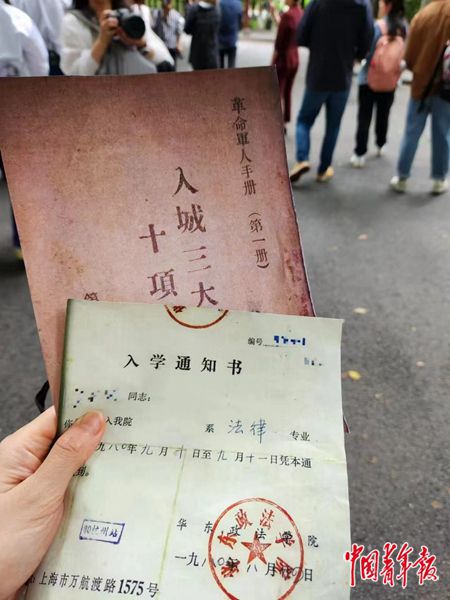 革命軍人手册(第一册)
入城三大
十項
第
编号
入学通知书
同志:
你 入我院 系 法律 专业
九八〇年九月十日至九月十一日凭本通
到。
华东政法学院
一九八〇年八月 日
杭州站
上海市万航渡路1575号
中国青年报